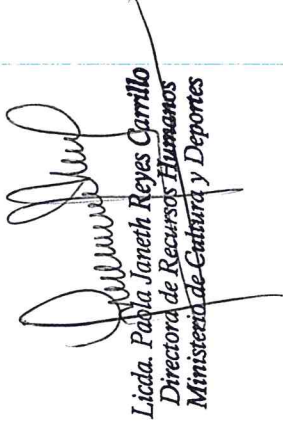 Licda. Paola Janeth Reyes Carrillo
Directora de Recursos Humanos
Ministerio de Cultura y Deportes